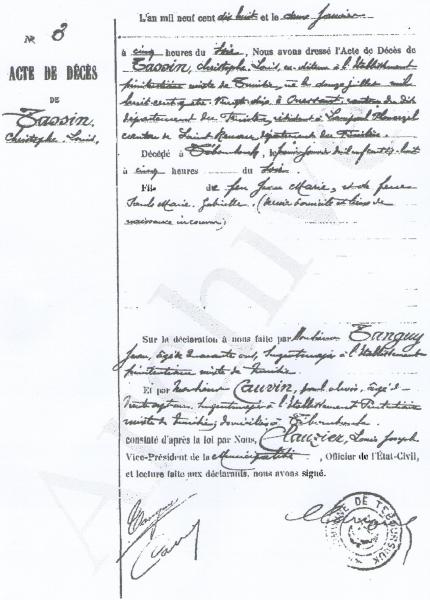 N° 3
ACTE DE DÉCÈS
DE
Tassin,
Christophe, Louis,
L'an mil neuf cent dix huit et le douze Janvier
à cinq heures du soir, Nous avons dressé l'Acte de Décès de
Tassin, Christophe, Louis, ex détenu à l'Etablissement
pénitentiaire mixte de Tunisie, né le douze juillet mil
huit cent quatre vingt dix à Ouessant, canton du dit
département du Finistère, résidant à Lampaul Plouarzel
canton de Saint Renan département du Finistère
Décédé à Téboursouk, le mil neuf cent dix huit
à cinq heures du soir.
Fils de feu Jean Marie, et de feue
Marie Gabrielle. (dernier domicile et lieu de
naissance inconnu)
Sur la déclaration à nous faite par Monsieur Tanguy
Jean, âgé de quarante ans, Sergent major à l'Etablissement
pénitentiaire mixte de Tunisie
Et par Monsieur Cauvin, âgé de
vingt sept ans, Sergent major à l'Etablissement Pénitentiaire
mixte de Tunisie, domiciliés à Téboursouk.
constaté d'après la loi par Nous, Clauzier, Louis Joseph
Vice-Président de la Municipalité, Officier de l'Etat-Civil,
et lecture faite aux déclarants, nous avons signé.
Tanguy
Cauvin
COMMUNE DE TEBOURSOUK
Archives